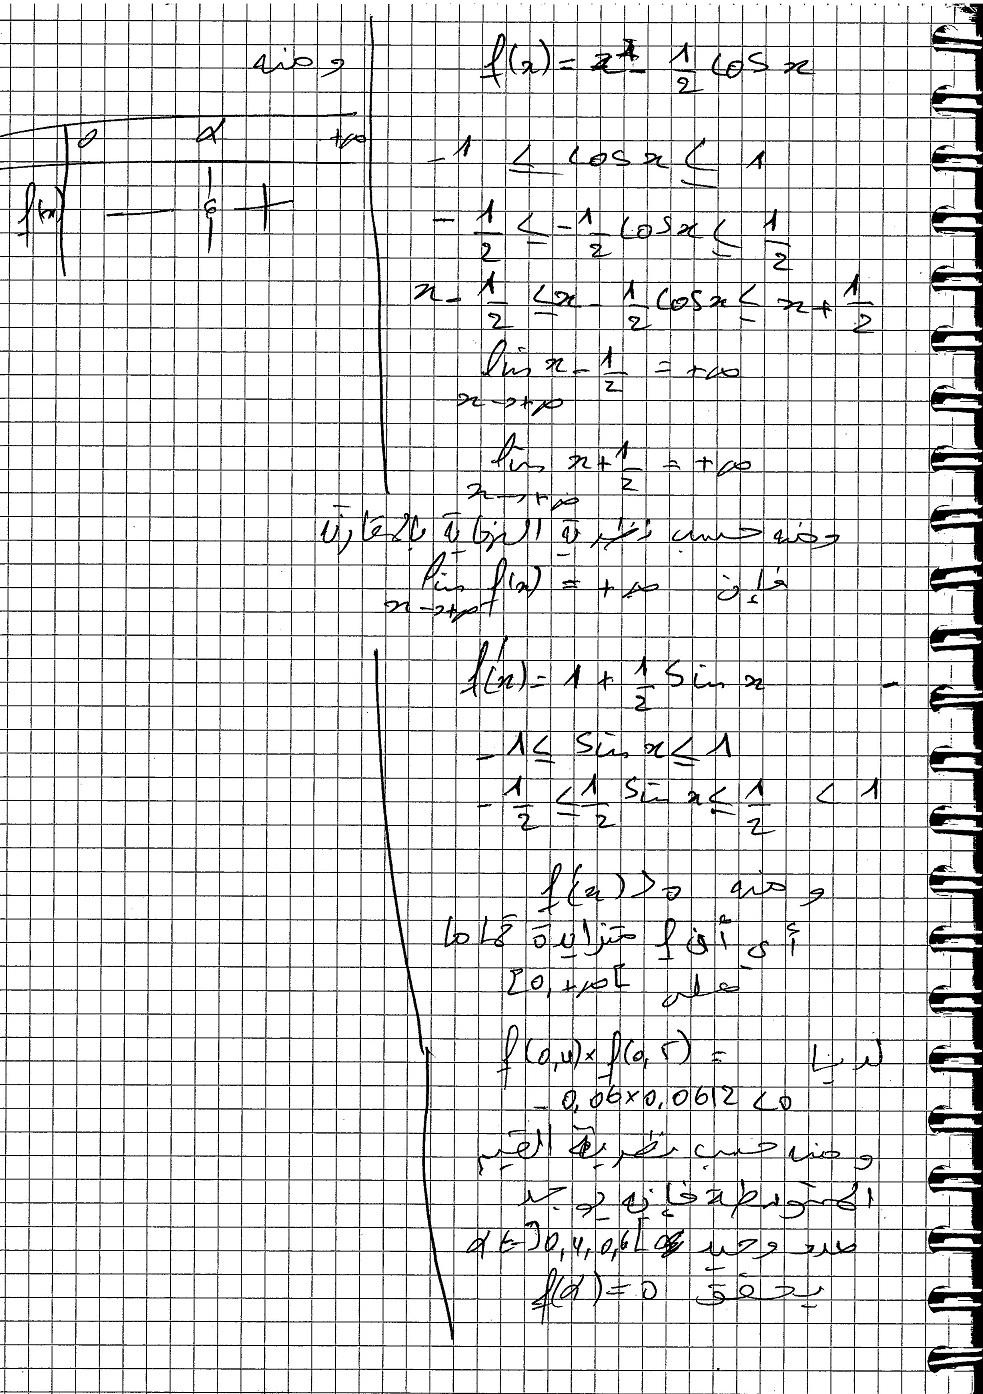 f(x) = x - 1/2 cos x
-1 ≤ cos x ≤ 1
-1/2 ≤ -1/2 cos x ≤ 1/2
x - 1/2 ≤ x - 1/2 cos x ≤ x + 1/2
lim x - 1/2 = +∞
x→+∞
lim x + 1/2 = +∞
x→+∞
ومنه حسب نظرية النهاية بالمقارنة
فإن lim f(x) = +∞
x→+∞
- f'(x) = 1 + 1/2 Sin x
-1 ≤ Sin x ≤ 1
-1/2 ≤ 1/2 Sin x ≤ 1/2 < 1
ومنه f'(x) > 0
أي أن f متزايدة تماما
على [0, +∞[
لدينا f(0,4) × f(0,5) =
- 0,06 × 0,0612 < 0
ومنه حسب نظرية القيم
المتوسطة فإنه يوجد
عدد وحيد α ∈ ]0,4, 0,6[
يحقق f(α) = 0
ومنه
0 α +∞
f(x) - 0 +